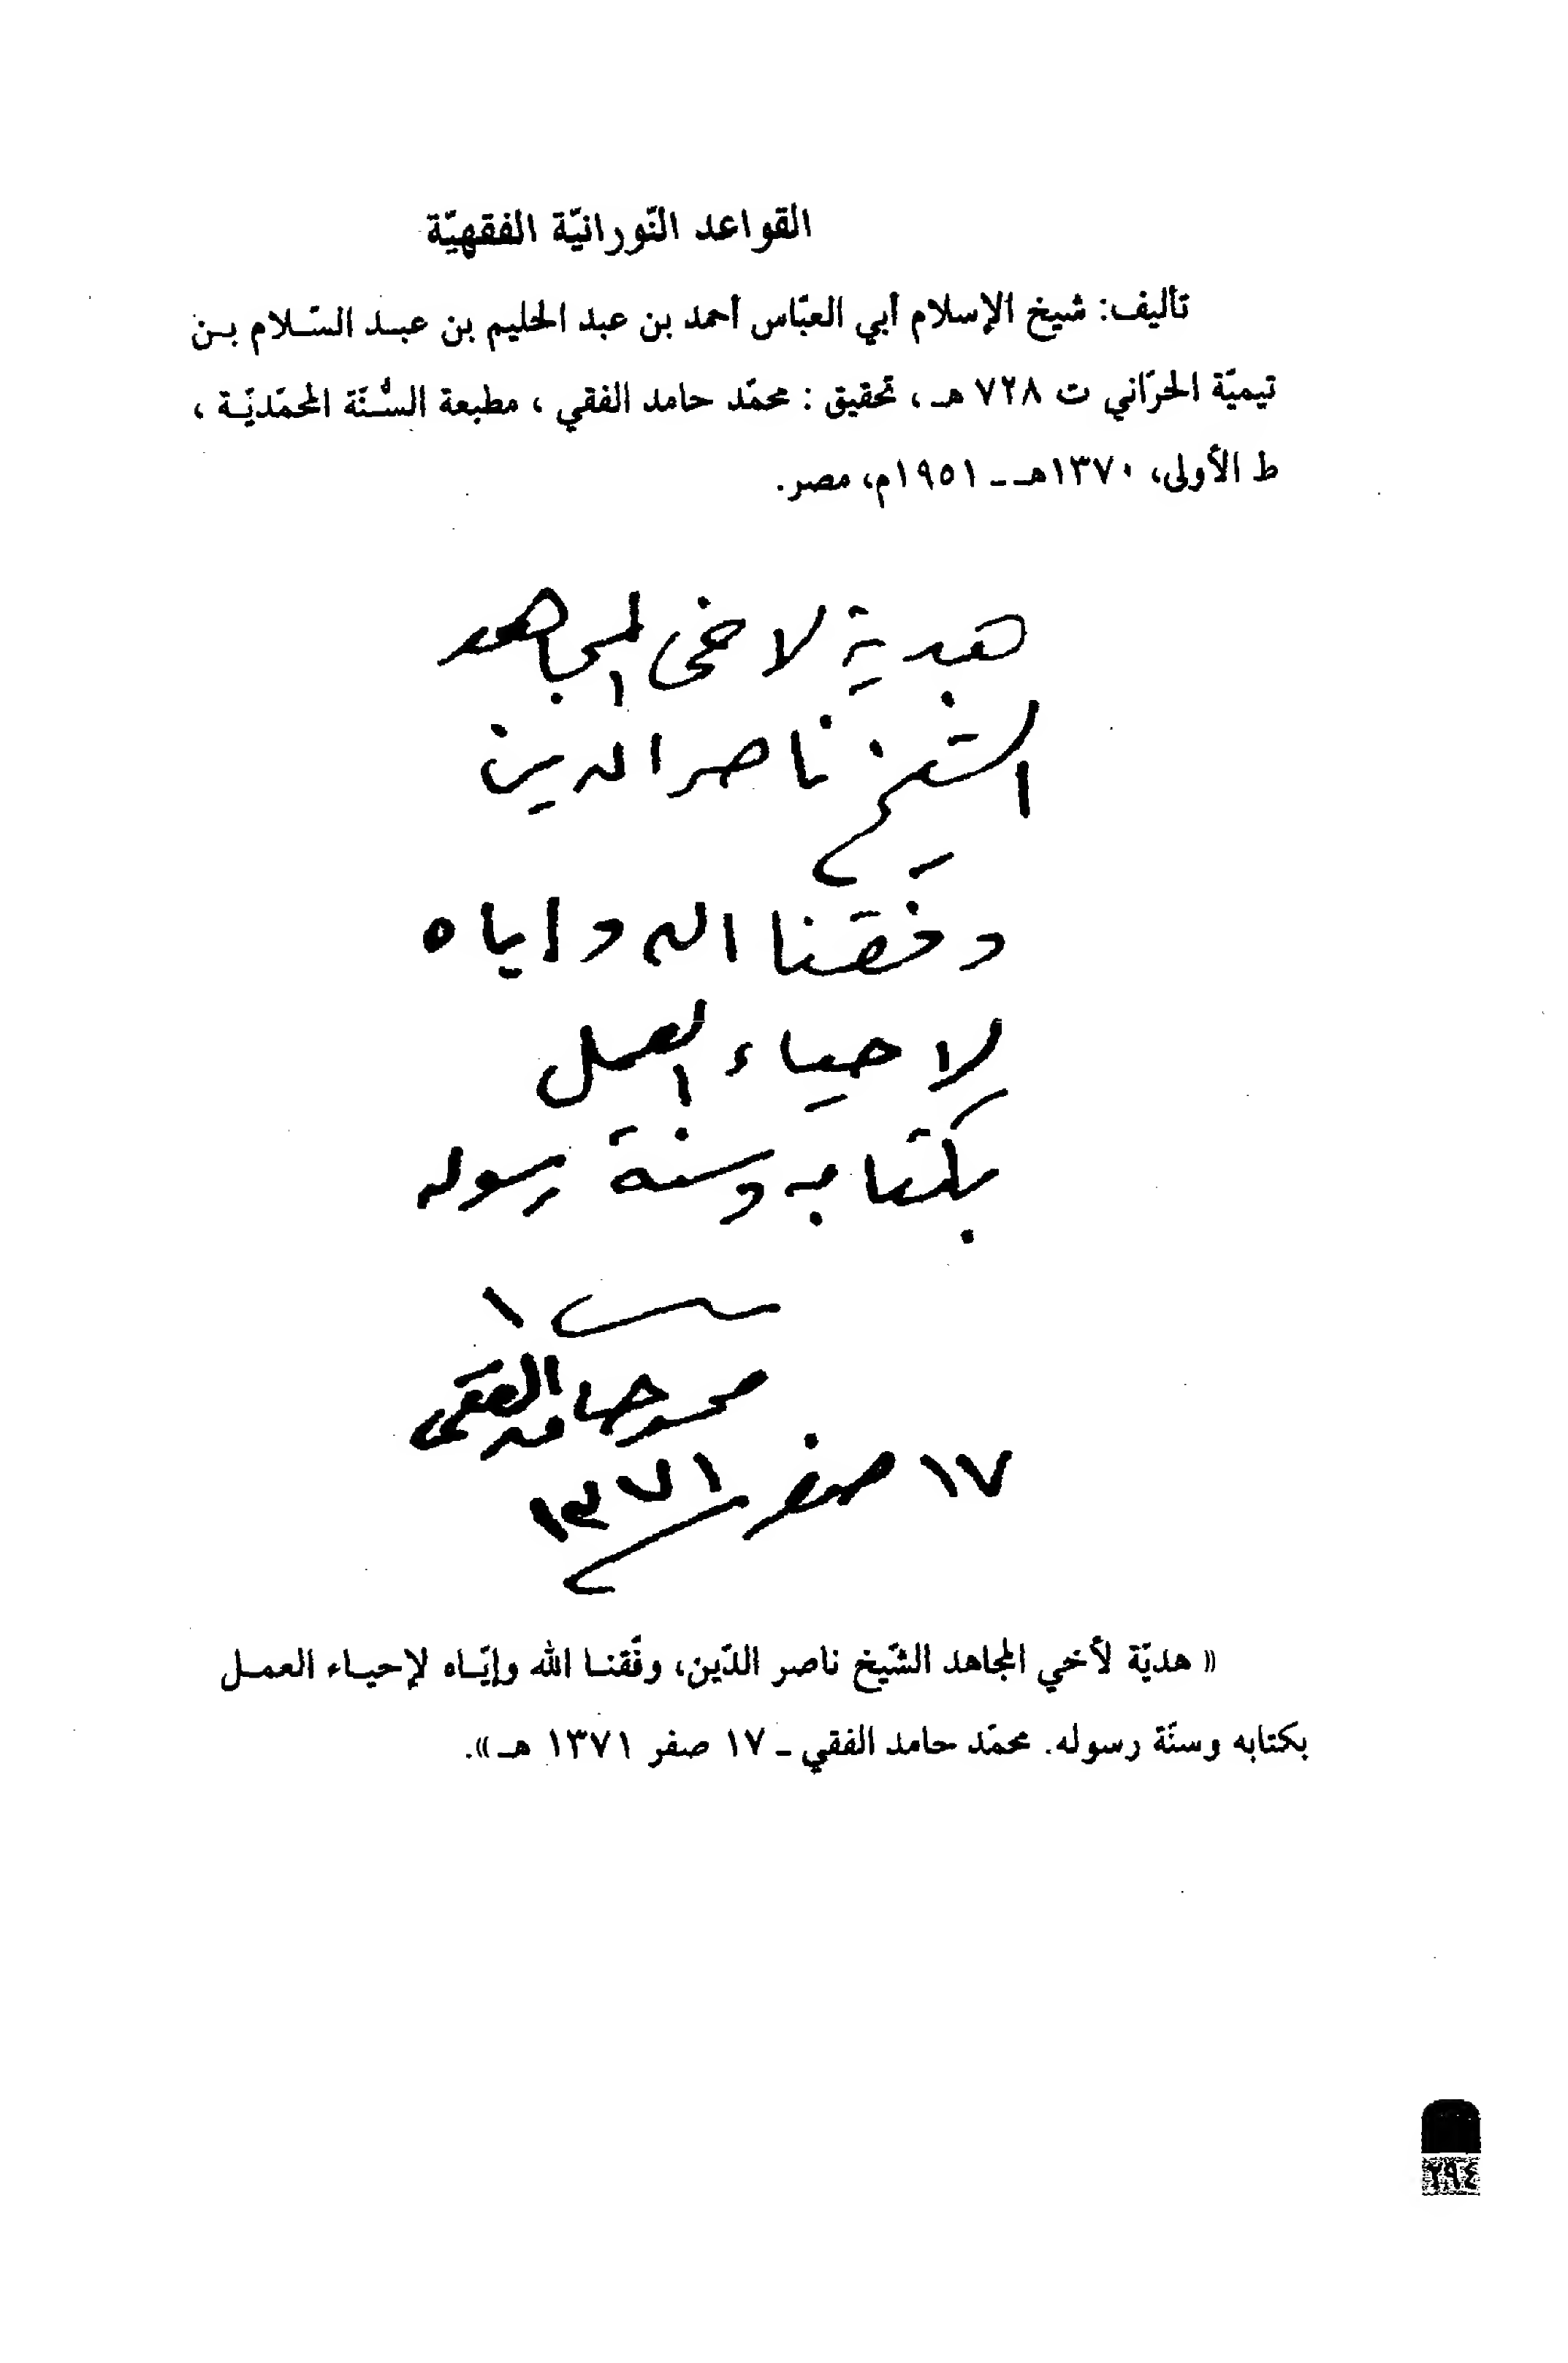 القواعد النّورانيّة الفقهيّة
تأليف: شيخ الإسلام أبي العبّاس أحمد بن عبد الحليم بن عبد السّلام بن
تيميّة الحرّاني ت ٧٢٨ هـ، تحقيق : محمّد حامد الفقي ، مطبعة السُّنّة المحمّديّة ،
ط الأولى، ١٣٧٠هـ ـ ١٩٥١م، مصر.
هدية لاخى المجاهد
الشيخ ناصر الدين
وفقنا الله واياه
لاحياء العمل
بكتابه وسنة رسوله
محمد حامد الفقى
١٧ صفر ١٣٧١
« هديّة لأخي المجاهد الشّيخ ناصر الدّين، وفّقنا الله وإيّاه لإحياء العمل
بكتابه وسنّة رسوله. محمّد حامد الفقي ـ ١٧ صفر ١٣٧١ هـ».
٢٩٤